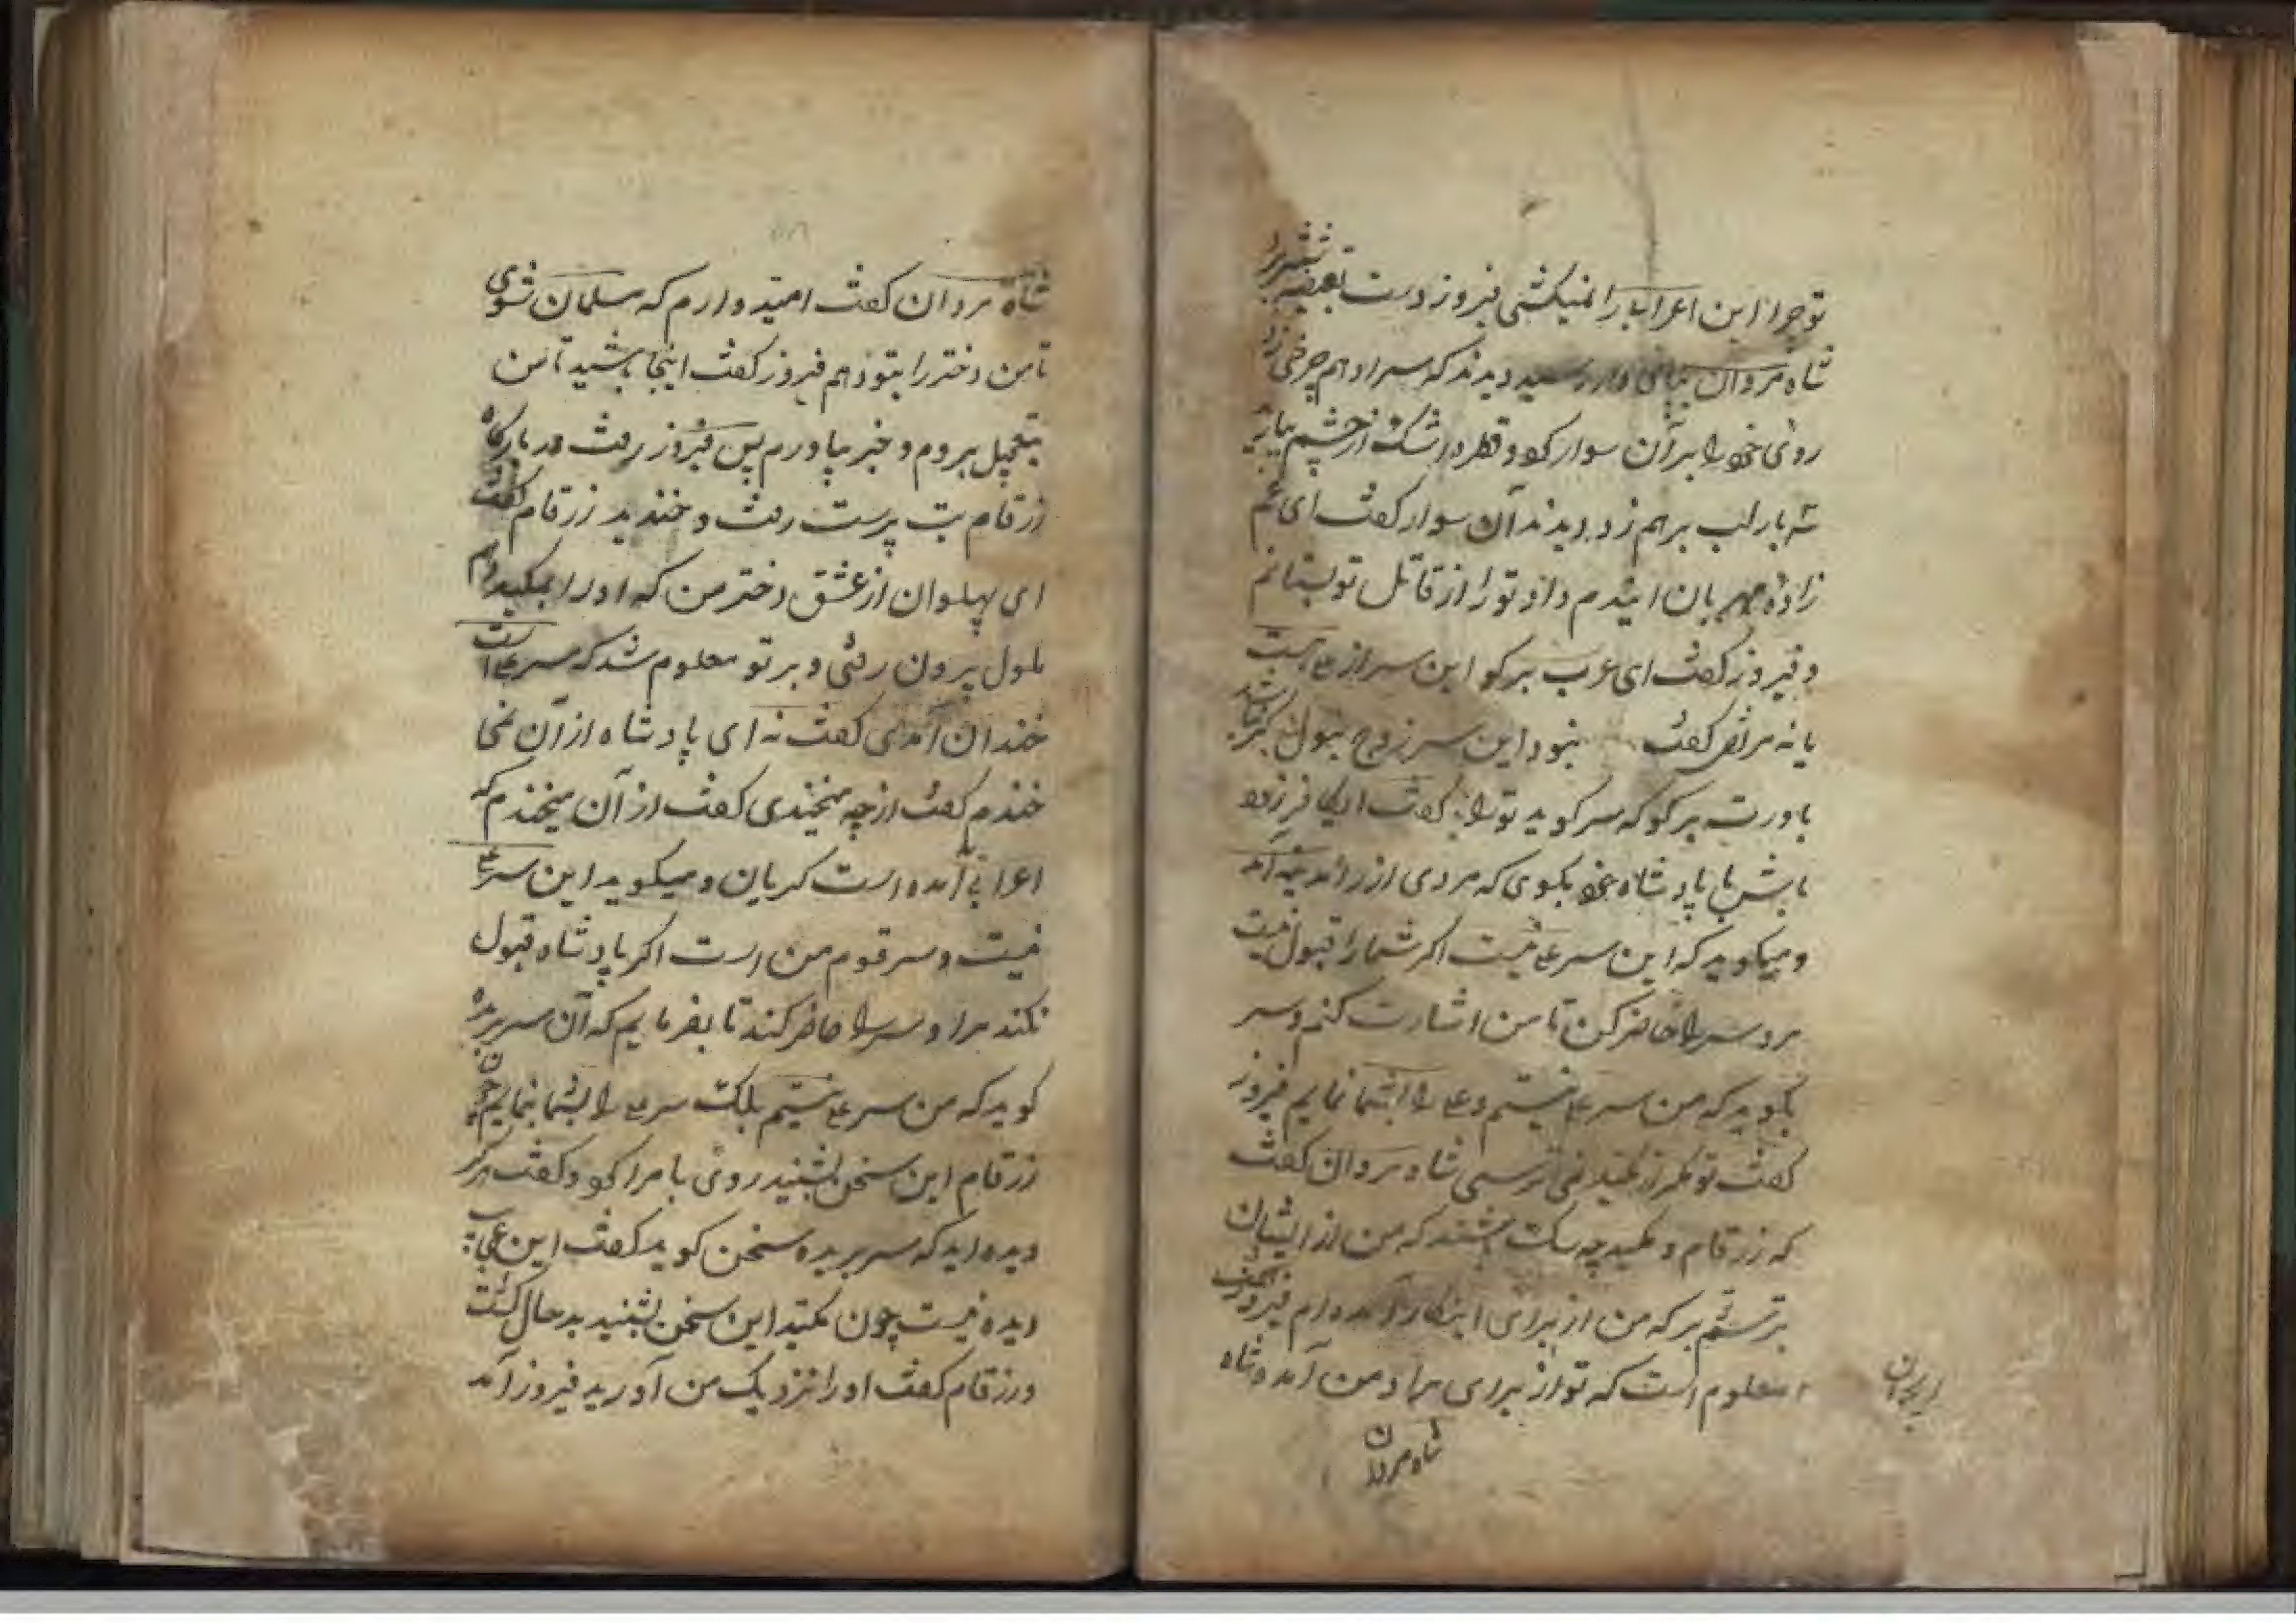 تو چرا این اعرابی را نمیکشی فیروز دست بقبضه شمشیر
شاه مردان دیدند که سر او هم چرخی زد
روی خود را بر آن سوار کرد و قطره اشک از چشم
سه بار لب بر هم زد دیدند آن سوار گفت ای عم
زاده مهربان آمدم داد تو را از قاتل تو بستانم
و فیروز گفت ای عرب برگو این سر از علی هست
یا نه مرتضی گفت نبود این سر زوج بتول گر نباشد
باورت برگو که سر گوید تو را گفت
باش با پادشاه خود بگوی که مردی از راه آمد
و میگوید که این سر علی نیست اگر شما را قبول نیست
برو سر را حاضر کن تا من اشارت کنم و سر
بگوید که من سر علی نیستم و علی را بشما نمایم فیروز
گفت تو مگر از نمی ترسی شاه مردان گفت
که زرقام و چه سگ هستند که من از ایشان
بترسم بر که من از برای اینکار آمده ام فیروز گفت
معلوم است که تو از برای مراد من آمده شاه
شاه مردان
شاه مردان گفت امید دارم که مسلمان شوی
تا من دختر را بتو دهم فیروز گفت اینجا باشید تا من
بتعجیل بروم و خبر بیاورم پس فیروز رفت در بارگاه
زرقام بت پرست رفت و خندید زرقام گفت
ای پهلوان از عشق دختر من که او را
ملول بیرون رفتی و بر تو معلوم شد که سر علی است
خندان آمدی گفت نه ای پادشاه از آن نمی
خندم گفت از چه میخندی گفت از آن میخندم که
اعرابی آمده است گریان و میگوید این سر علی
نیست و سر قوم من است اگر پادشاه قبول
نکند مرا و سر را حاضر کند تا بفرمایم که آن سر بریده
گوید که من سر علی نیستم بلکه سر علی را بشما بنمایم چون
زرقام این سخن بشنید روی با مرا کرد و گفت هرگز
دیده اید که سر بریده سخن گوید گفت این عجایب
دیده نیست چون این سخن بشنید بد حال گشت
و زرقام گفت او را نزدیک من آورید فیروز آمد